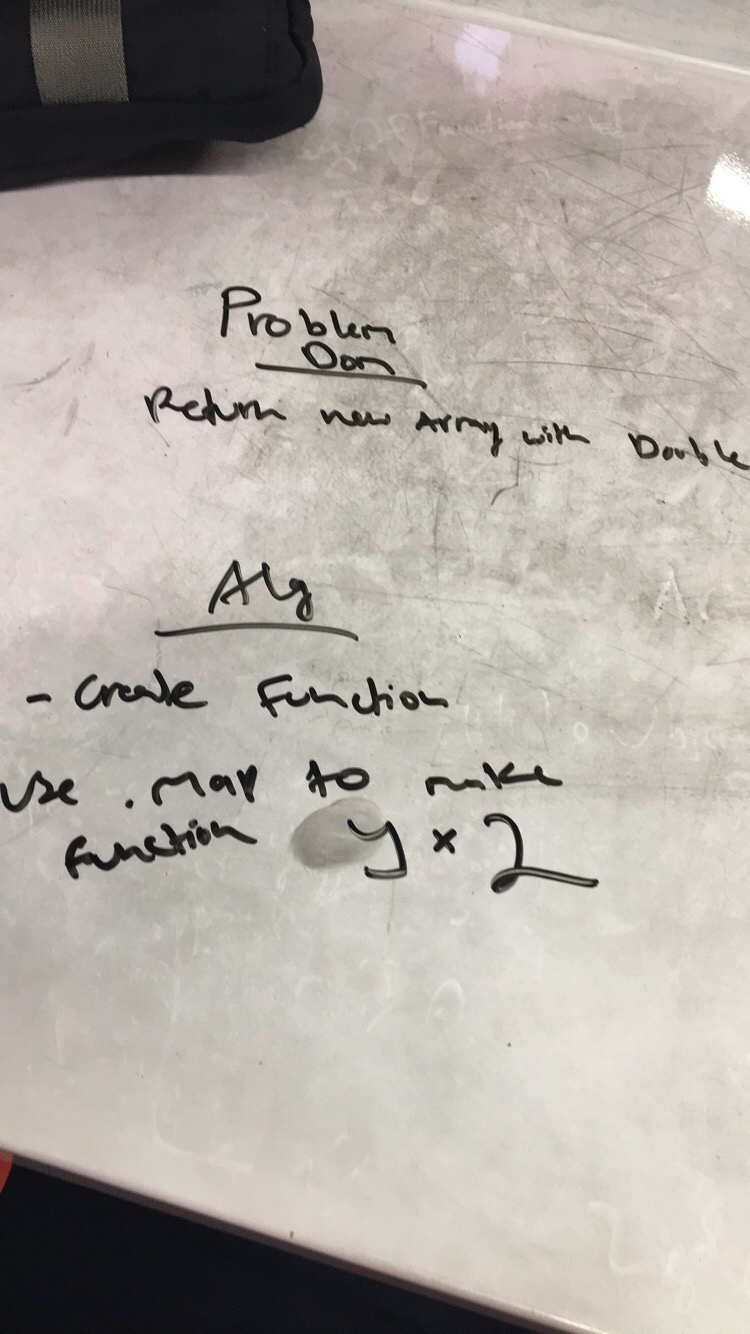 Problem
Dom
Return new Array with Double
Alg
- Create Function
Use .map to make
function y x 2